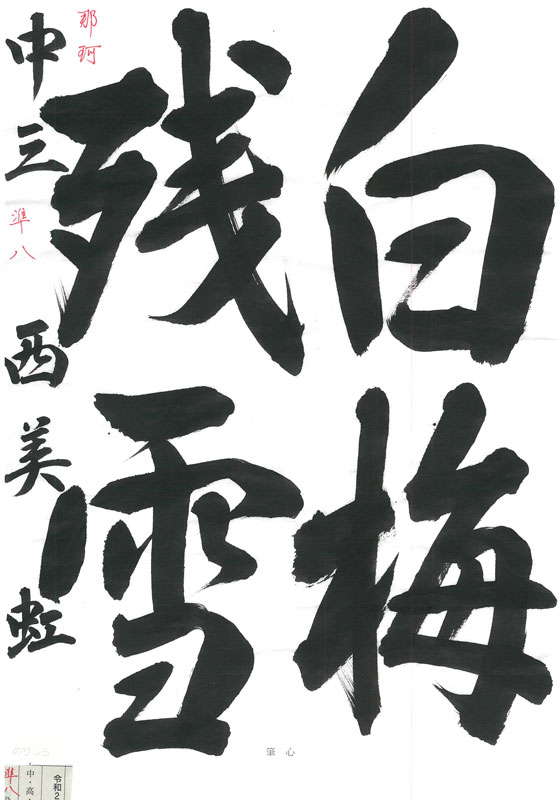 白梅
残雪
那珂
中三 準八 西美虹
心筆
令和2
・中・高・
準八